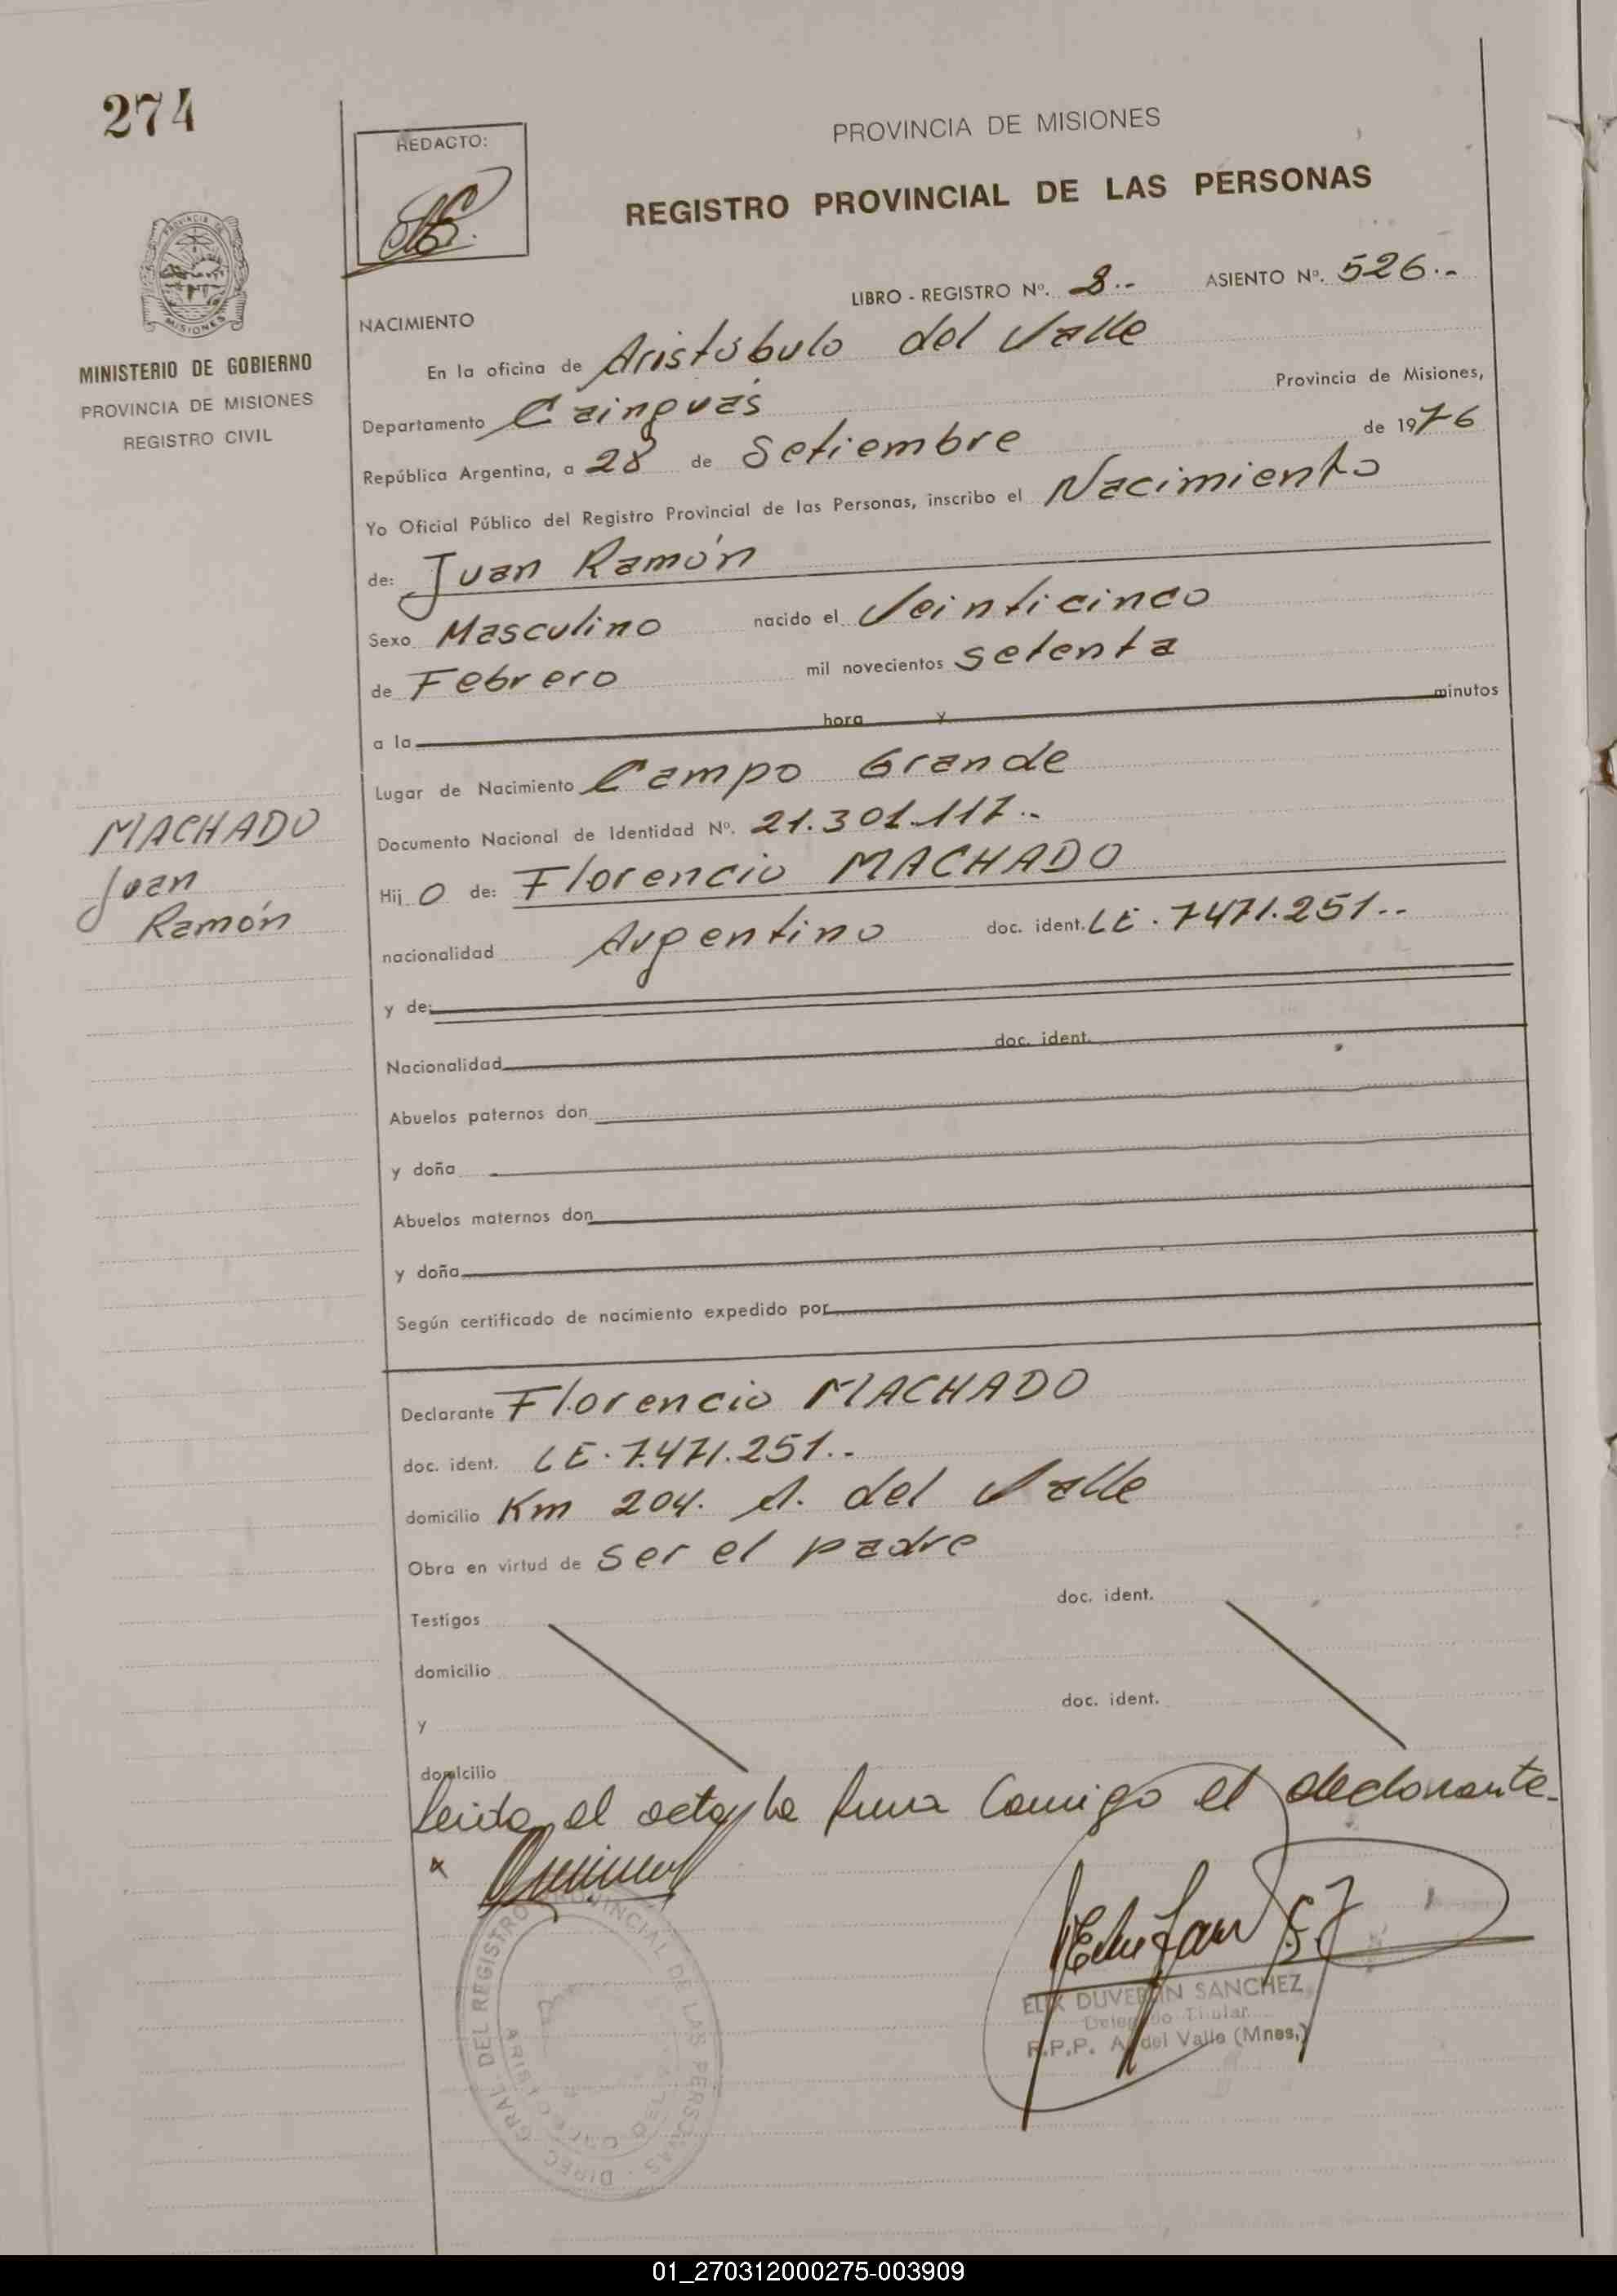 274
REDACTO:
PROVINCIA DE MISIONES
REGISTRO PROVINCIAL DE LAS PERSONAS
PROVINCIA DE MISIONES
MINISTERIO DE GOBIERNO
PROVINCIA DE MISIONES
REGISTRO CIVIL
LIBRO - REGISTRO Nº. 8.- ASIENTO Nº. 526.-
NACIMIENTO
En la oficina de Aristóbulo del Valle
Departamento Cainguás Provincia de Misiones,
República Argentina, a 28 de Setiembre de 1976
Yo Oficial Público del Registro Provincial de las Personas, inscribo el Nacimiento
de: Juan Ramón
Sexo Masculino nacido el Veinticinco
de Febrero mil novecientos setenta
a la hora y minutos
Lugar de Nacimiento Campo Grande
Documento Nacional de Identidad Nº. 21.301.117.-
MACHADO
Juan
Ramón
Hij O de: Florencio MACHADO
nacionalidad Argentino doc. ident. LE. 7471.251.-
y de:
Nacionalidad doc. ident.
Abuelos paternos don
y doña
Abuelos maternos don
y doña
Según certificado de nacimiento expedido por
Declarante Florencio MACHADO
doc. ident. LE. 7.471.251.-
domicilio Km 204. A. del Valle
Obra en virtud de ser el padre
Testigos doc. ident.
domicilio
y doc. ident.
domicilio
leida el acta, la firma Comigo el declarante.-
x
DIREC. GRAL. DEL REGISTRO PROVINCIAL DE LAS PERSONAS
DUVER SANCHEZ
Titular
R.P.P. A. del Valle (Mnes.)
01_270312000275-003909